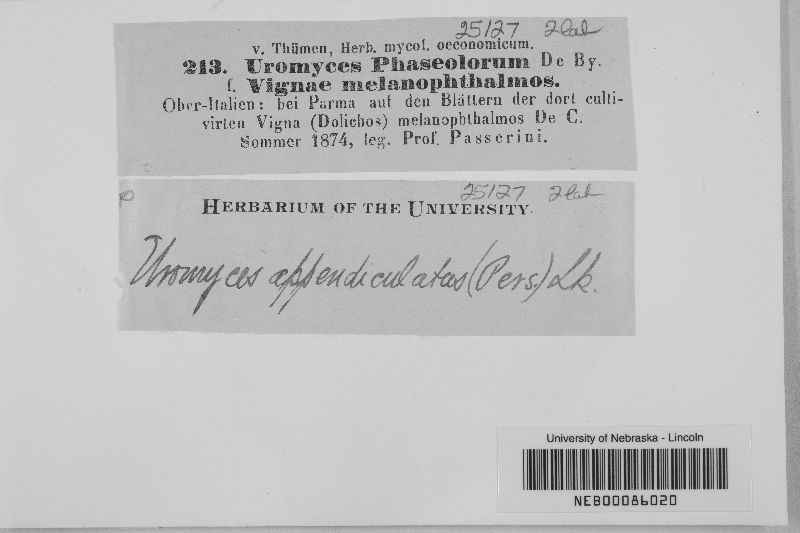 25127 2lab
v. Thümen, Herb. mycol. oeconomicum.
213. Uromyces Phaseolorum De By.
f. Vignae melanophthalmos.
Ober-Italien: bei Parma auf den Blättern der dort culti-
virten Vigna (Dolichos) melanophthalmos De C.
Sommer 1874, leg. Prof. Passerini.
25127 2lab
HERBARIUM OF THE UNIVERSITY.
Uromyces appendiculatas (Pers.) Lk.
University of Nebraska - Lincoln
NEB00086020